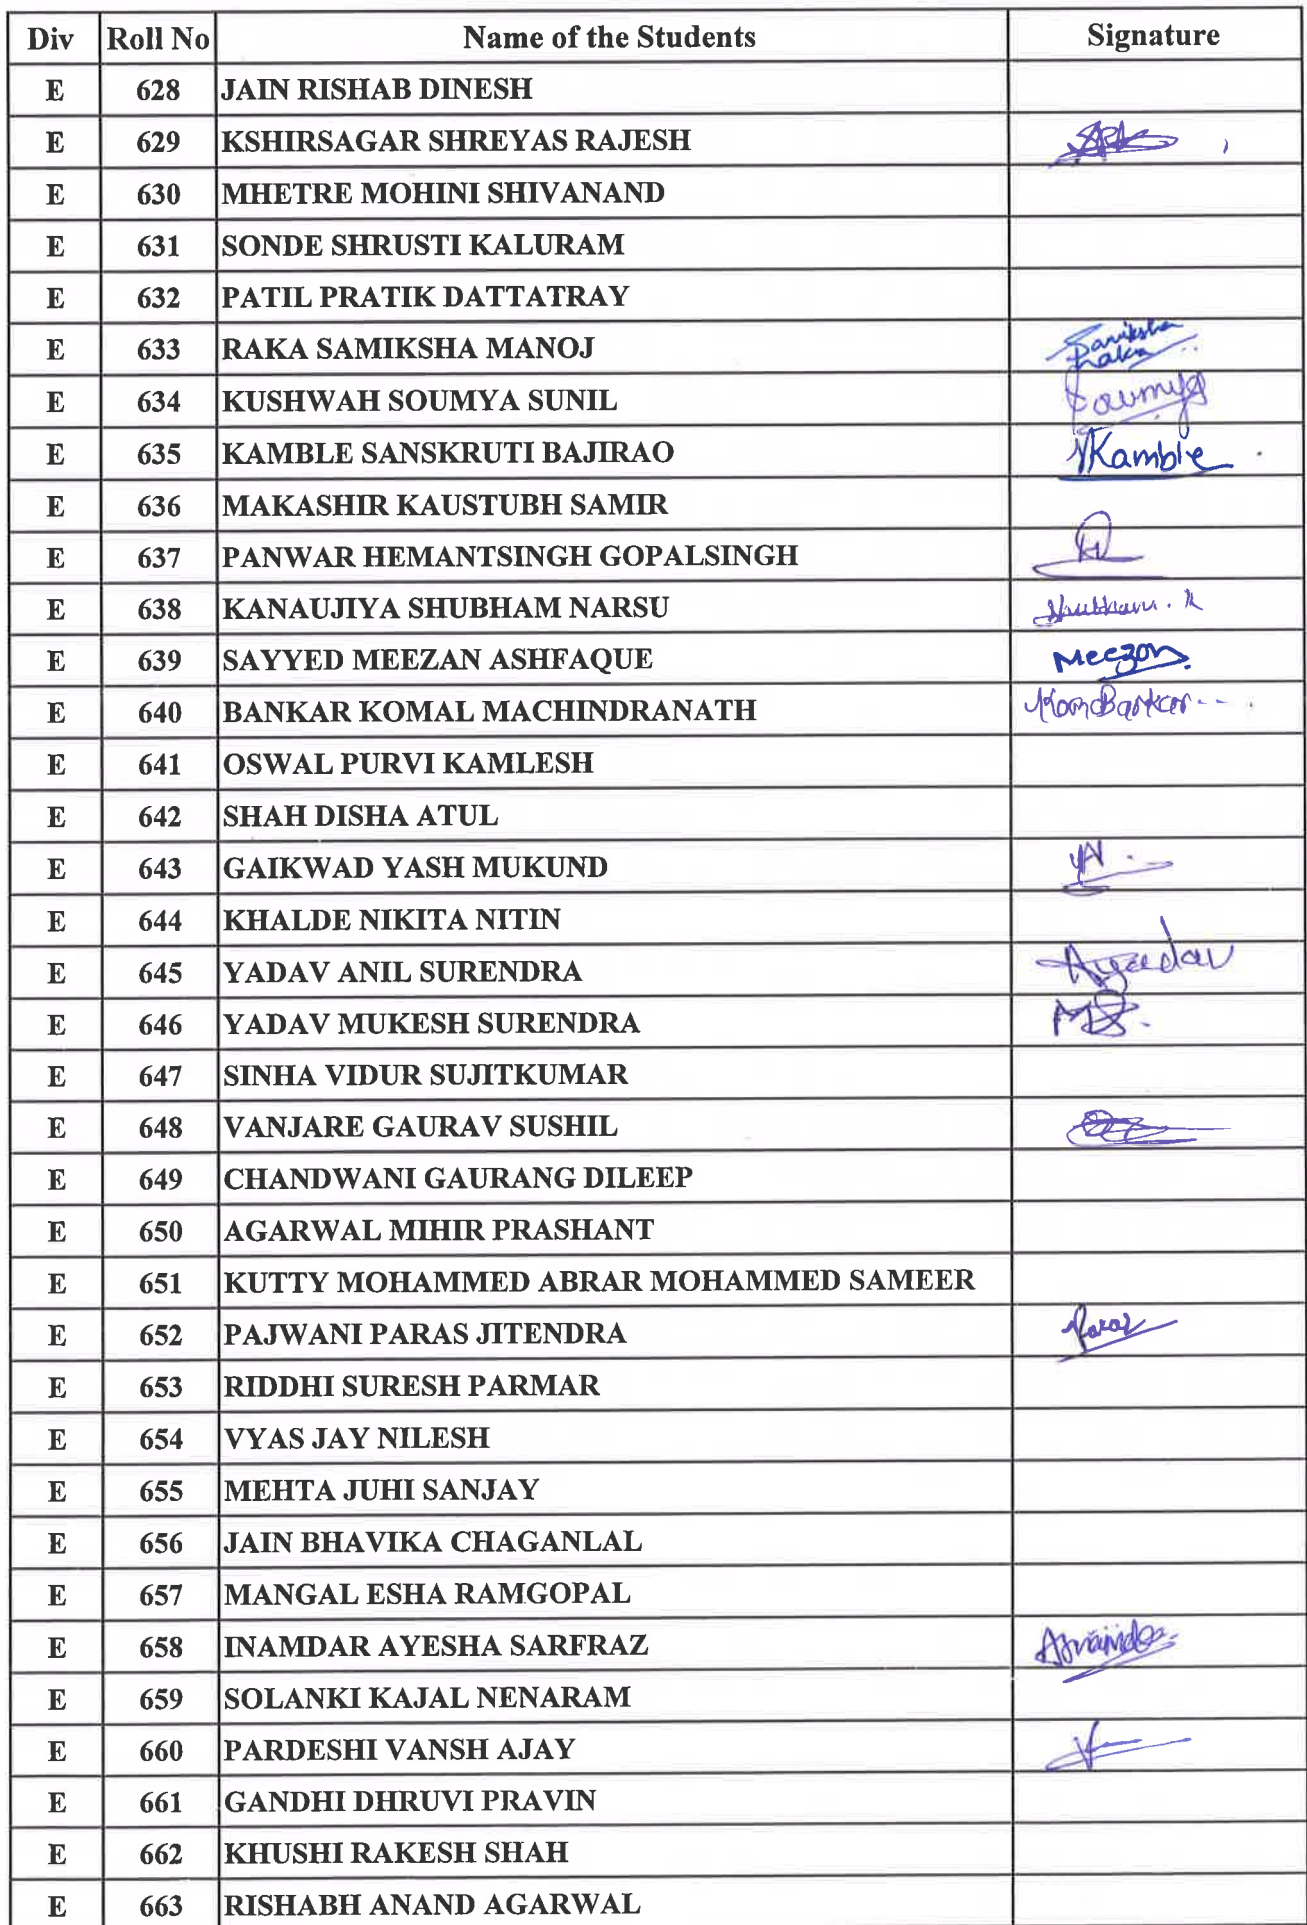 Div Roll No Name of the Students Signature
E 628 JAIN RISHAB DINESH
E 629 KSHIRSAGAR SHREYAS RAJESH
E 630 MHETRE MOHINI SHIVANAND
E 631 SONDE SHRUSTI KALURAM
E 632 PATIL PRATIK DATTATRAY
E 633 RAKA SAMIKSHA MANOJ Samiksha Raka
E 634 KUSHWAH SOUMYA SUNIL Soumya
E 635 KAMBLE SANSKRUTI BAJIRAO Kamble
E 636 MAKASHIR KAUSTUBH SAMIR
E 637 PANWAR HEMANTSINGH GOPALSINGH
E 638 KANAUJIYA SHUBHAM NARSU Shubham. K
E 639 SAYYED MEEZAN ASHFAQUE Meezan
E 640 BANKAR KOMAL MACHINDRANATH
E 641 OSWAL PURVI KAMLESH
E 642 SHAH DISHA ATUL
E 643 GAIKWAD YASH MUKUND
E 644 KHALDE NIKITA NITIN
E 645 YADAV ANIL SURENDRA Ayadav
E 646 YADAV MUKESH SURENDRA
E 647 SINHA VIDUR SUJITKUMAR
E 648 VANJARE GAURAV SUSHIL
E 649 CHANDWANI GAURANG DILEEP
E 650 AGARWAL MIHIR PRASHANT
E 651 KUTTY MOHAMMED ABRAR MOHAMMED SAMEER
E 652 PAJWANI PARAS JITENDRA Paras
E 653 RIDDHI SURESH PARMAR
E 654 VYAS JAY NILESH
E 655 MEHTA JUHI SANJAY
E 656 JAIN BHAVIKA CHAGANLAL
E 657 MANGAL ESHA RAMGOPAL
E 658 INAMDAR AYESHA SARFRAZ
E 659 SOLANKI KAJAL NENARAM
E 660 PARDESHI VANSH AJAY
E 661 GANDHI DHRUVI PRAVIN
E 662 KHUSHI RAKESH SHAH
E 663 RISHABH ANAND AGARWAL